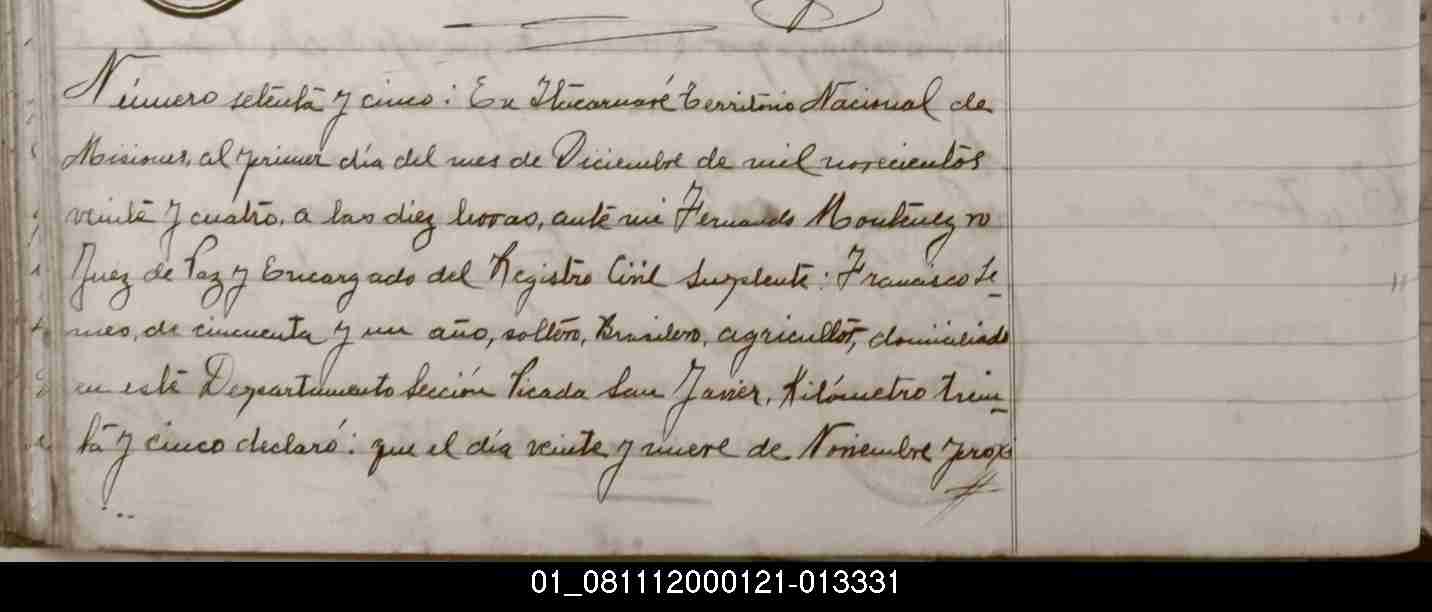 Número setenta y cinco: En Itacaruaré Territorio Nacional de
Misiones, al primer día del mes de Diciembre de mil novecientos
veinte y cuatro, a las diez horas, ante mi Fernando Montenegro
Juez de Paz y Encargado del Registro Civil Suplente: Francisco Le-
mes, de cincuenta y un año, soltero, Brasilero, agricultor, domiciliado
en este Departamento Sección Picada San Javier, Kilómetro trein-
ta y cinco declaró: que el día veinte y nueve de Noviembre proxi
01_081112000121-013331